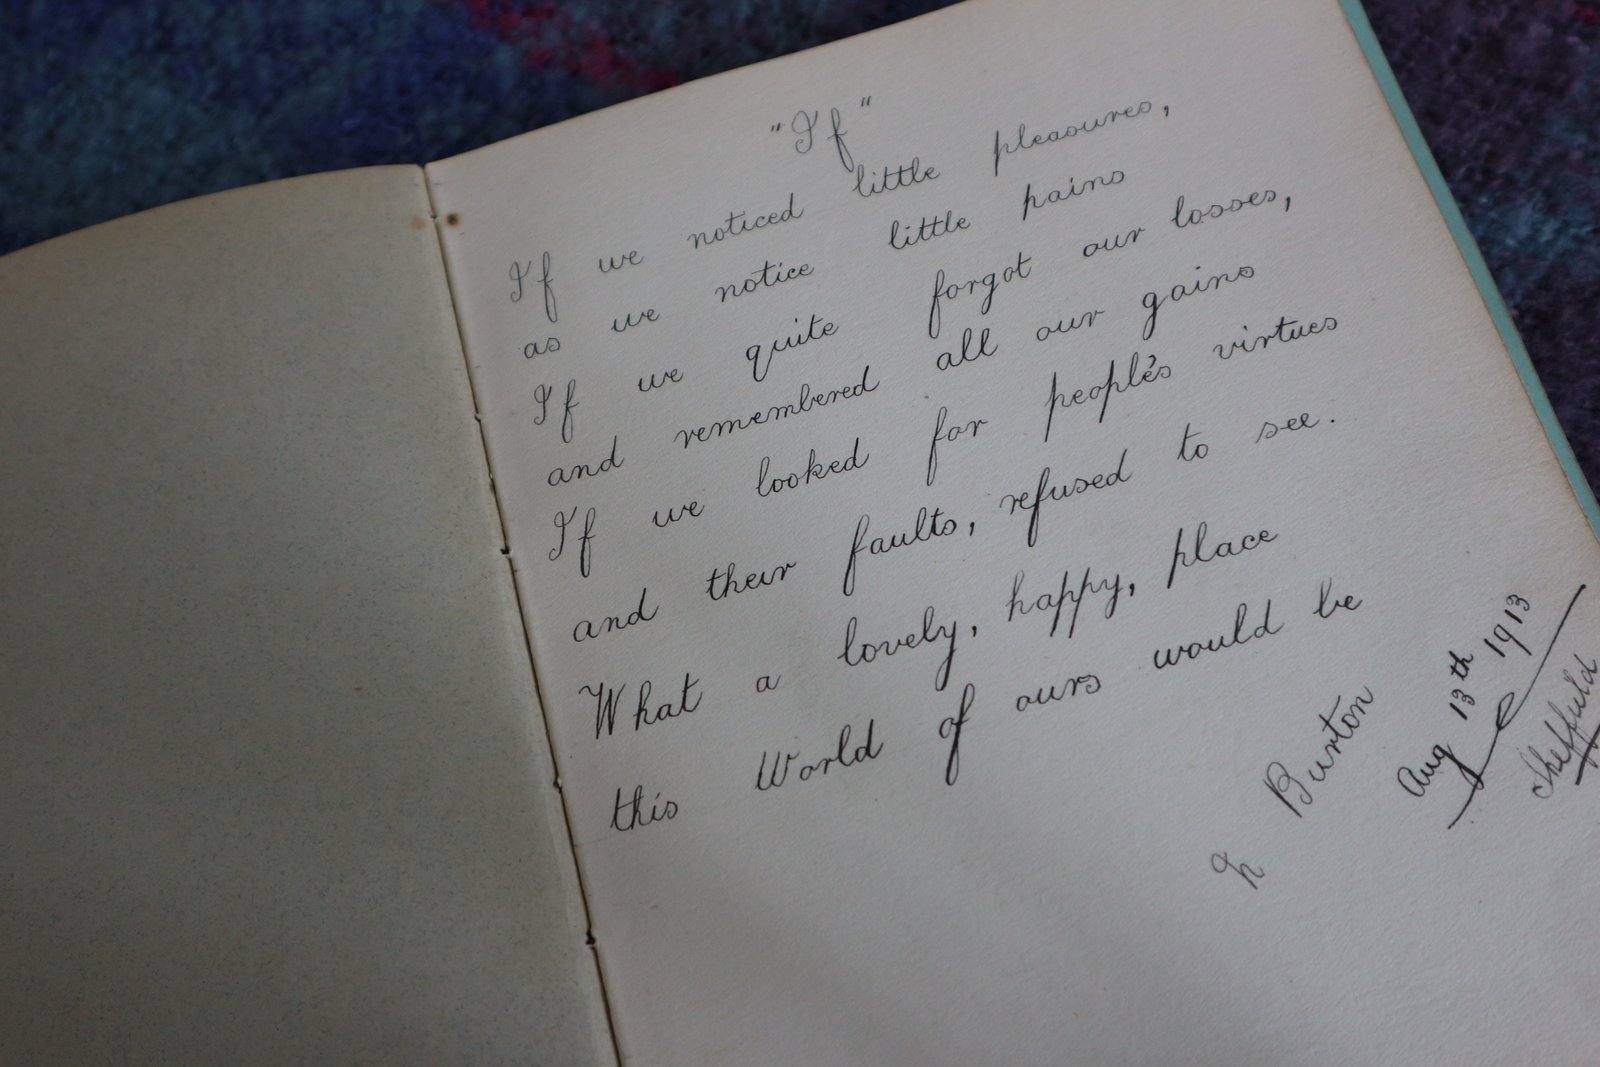 "If"
If we noticed little pleasures,
as we notice little pains
If we quite forgot our losses,
and remembered all our gains
If we looked for people's virtues
and their faults, refused to see.
What a lovely, happy, place
this World of ours would be
h Burton
Aug 13th 1913
Sheffield